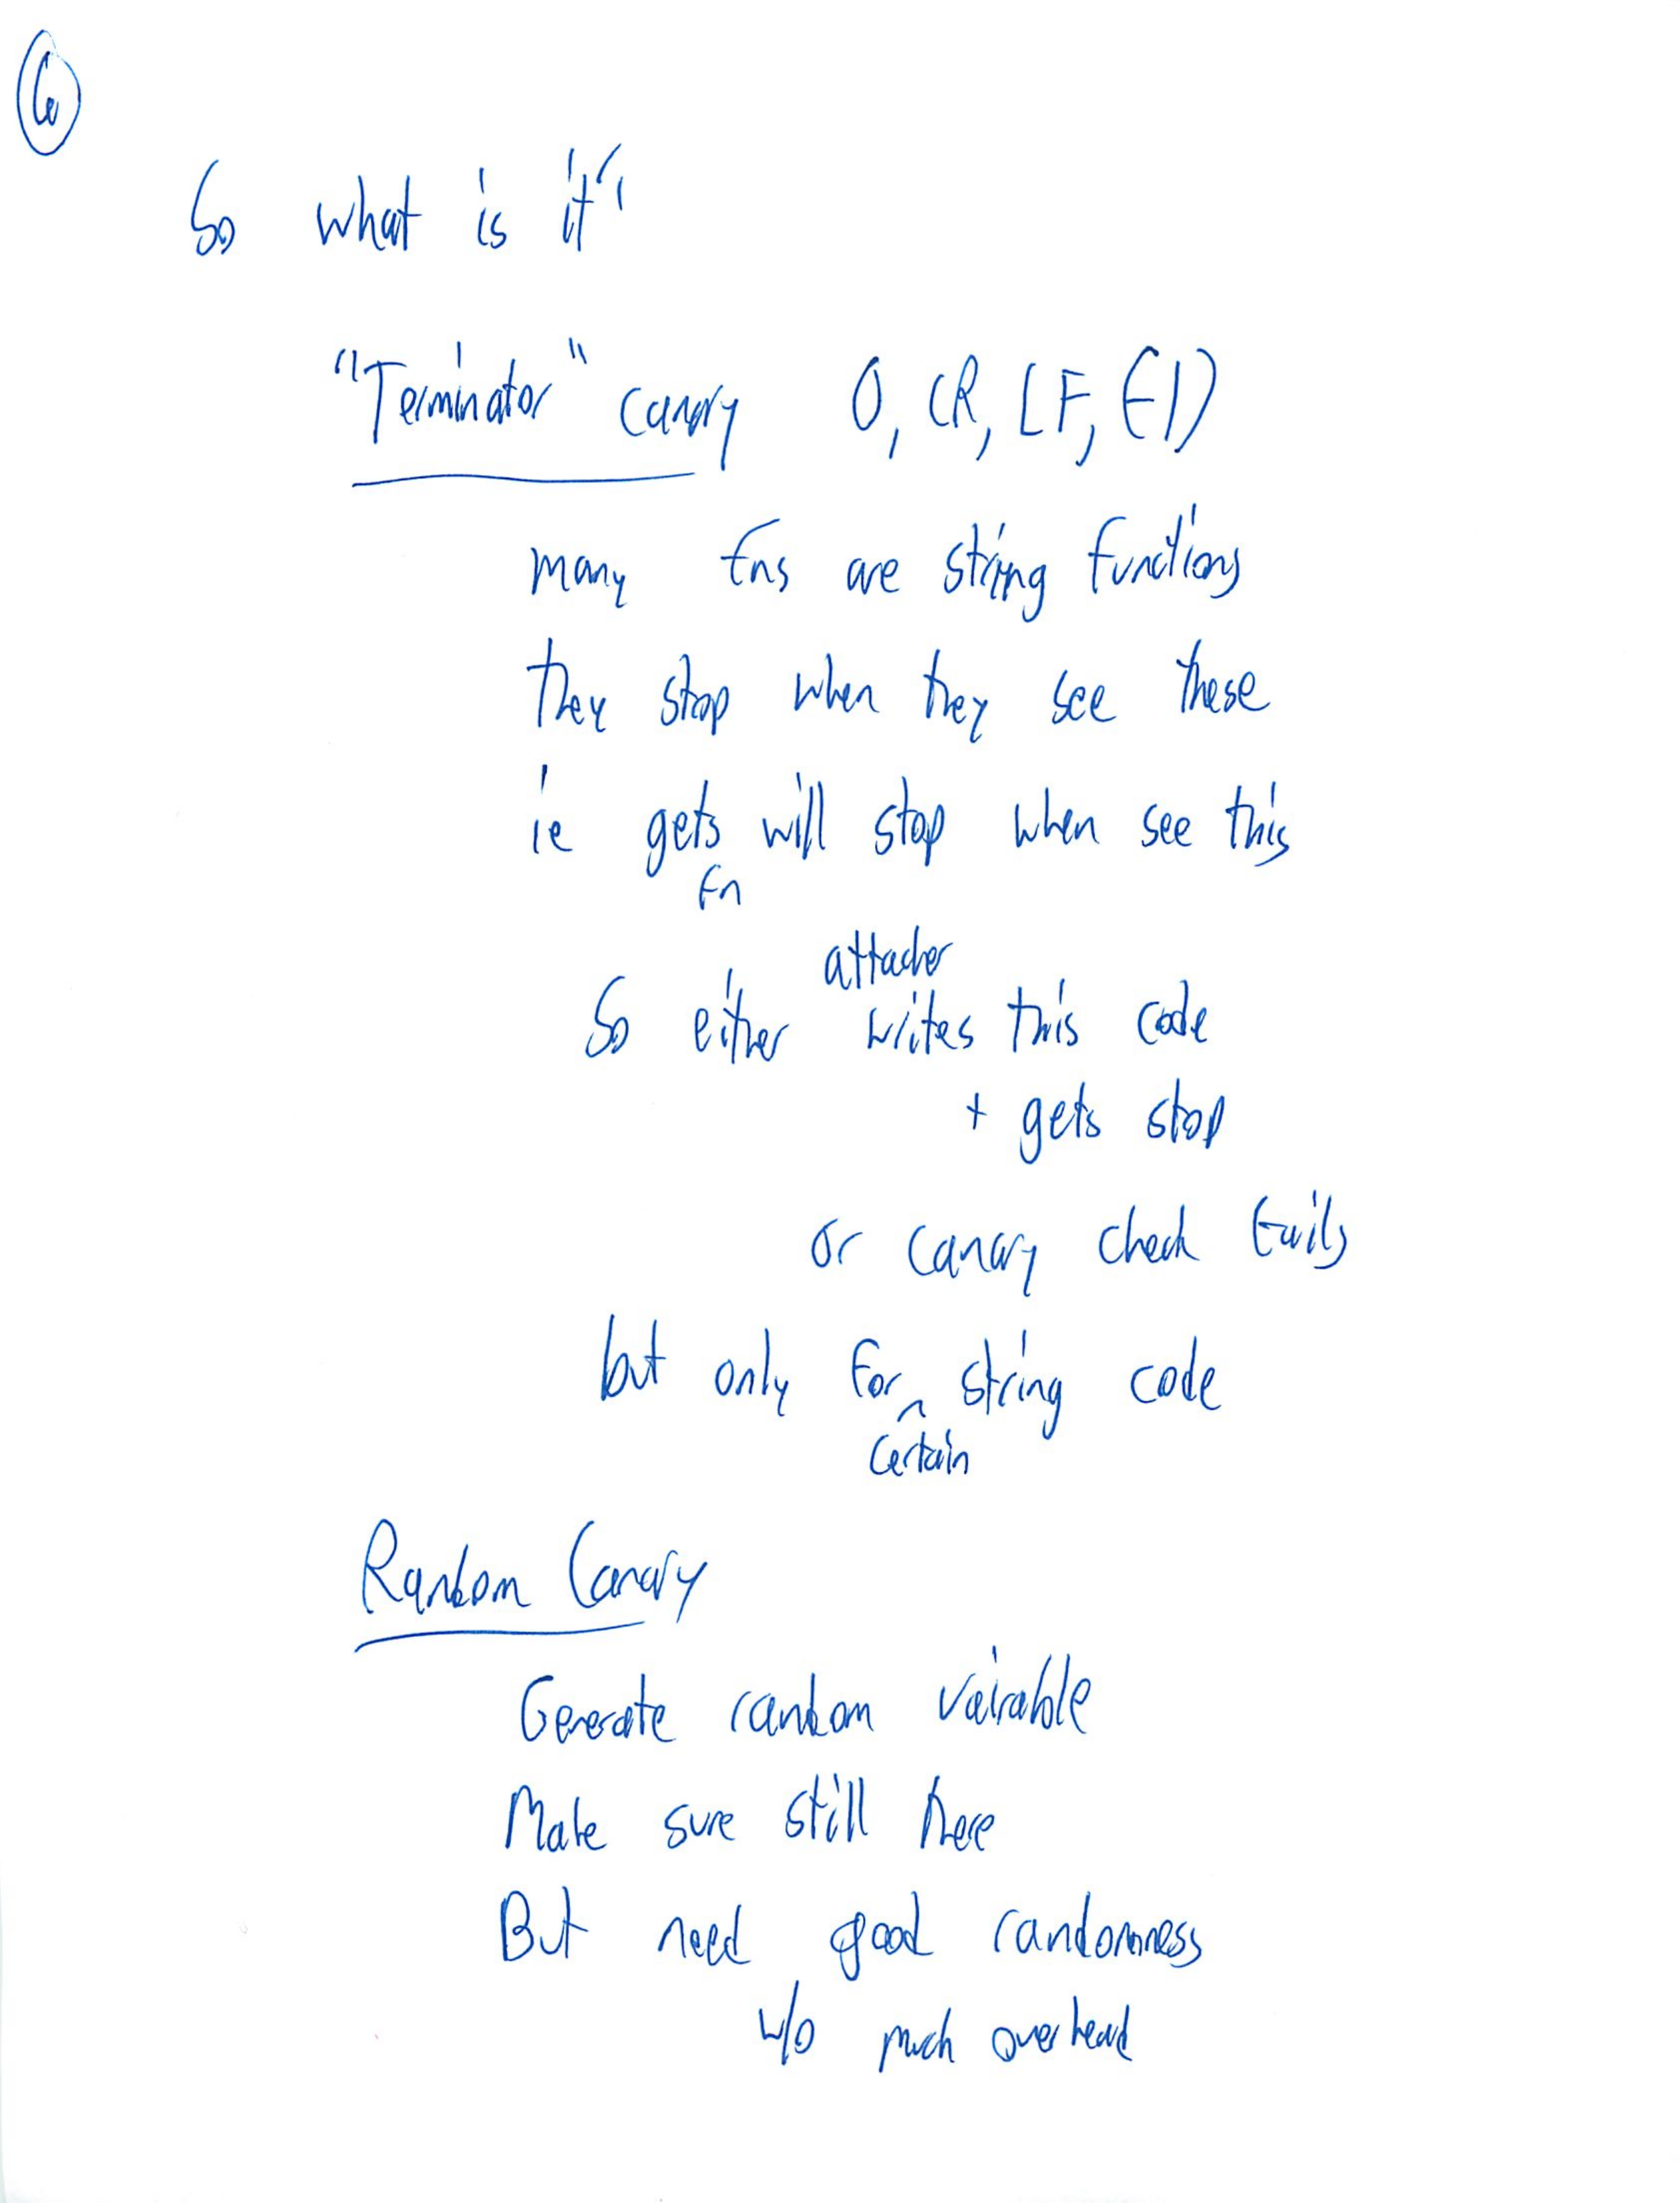 6
So what is it?
"Terminator" canary 0, CR, LF, EI)
many fns are string functions
They stop when they see these
ie gets will stop when see this
fn
attacker
So either writes this code
+ gets stop
or canary check fails
but only for ^ string code
certain
Random Canary
Generate random vairable
Make sure still there
But need good randomness
w/o much overhead